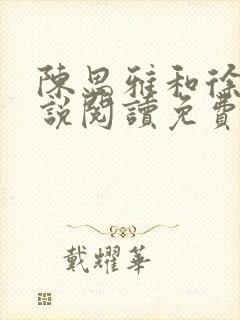 陳思雅和徐
說閱讀免費
戴耀華